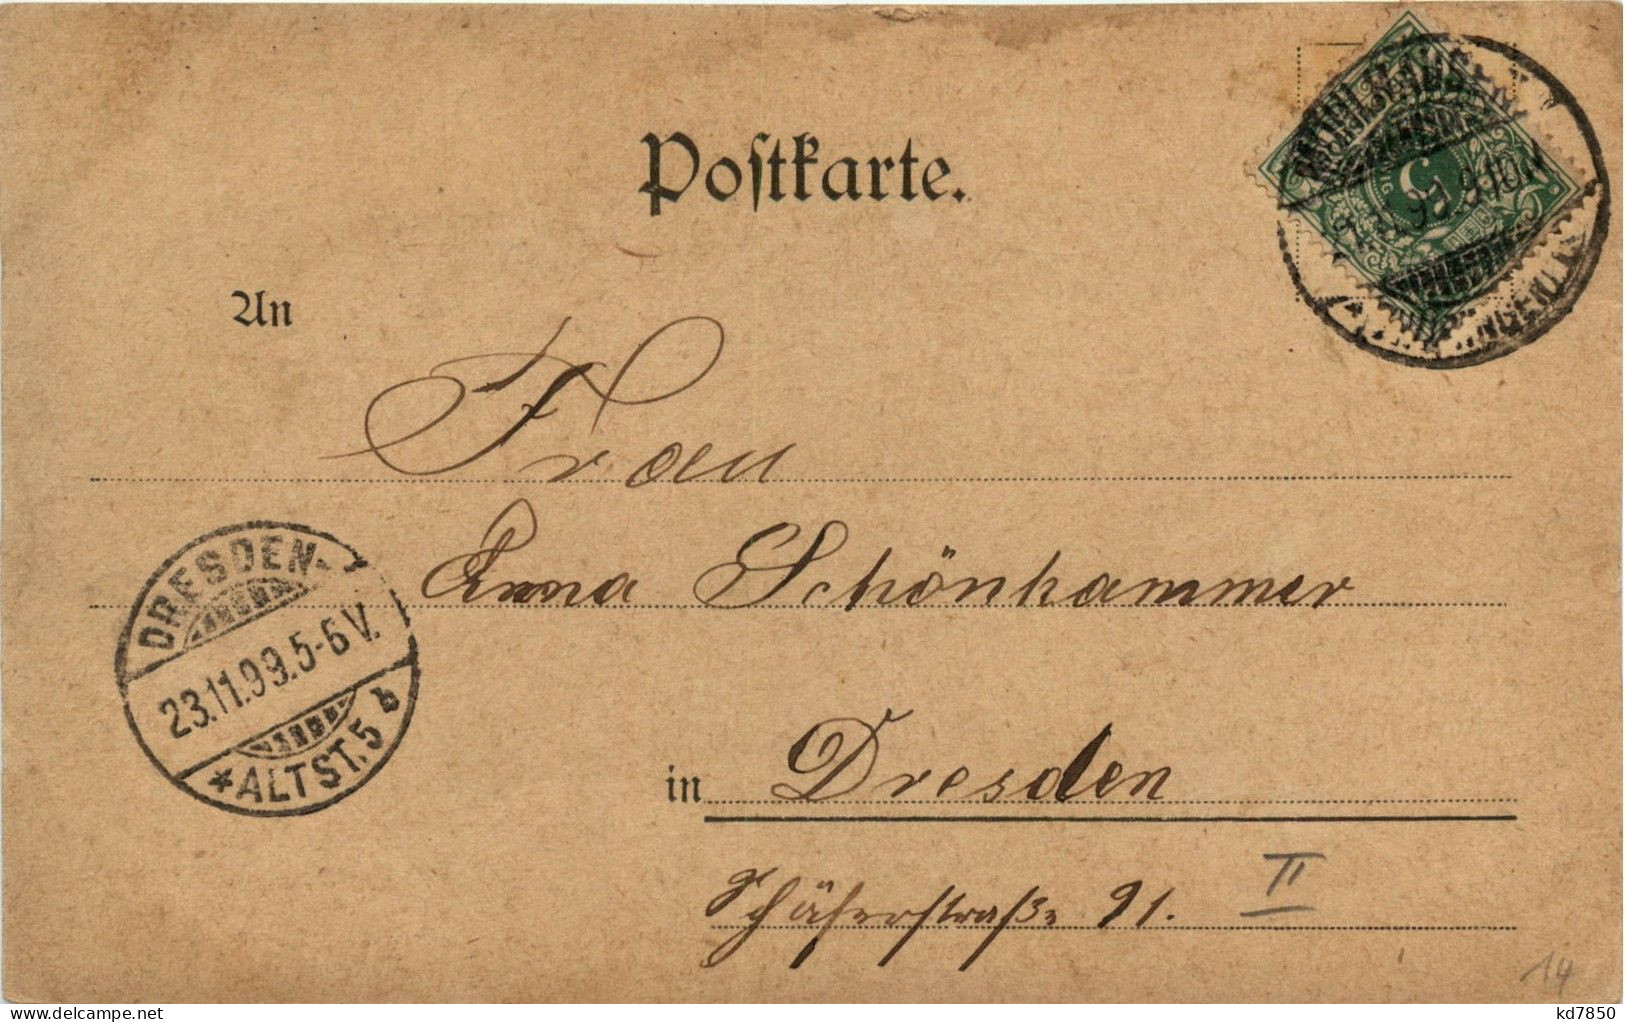 Postkarte.
An
Frau
Anna Schönhammer
in Dresden
Schäferstraße 21. II
DRESDEN-
23.11.99.5-6V.
*ALTST.5 b
5
14
kd7850